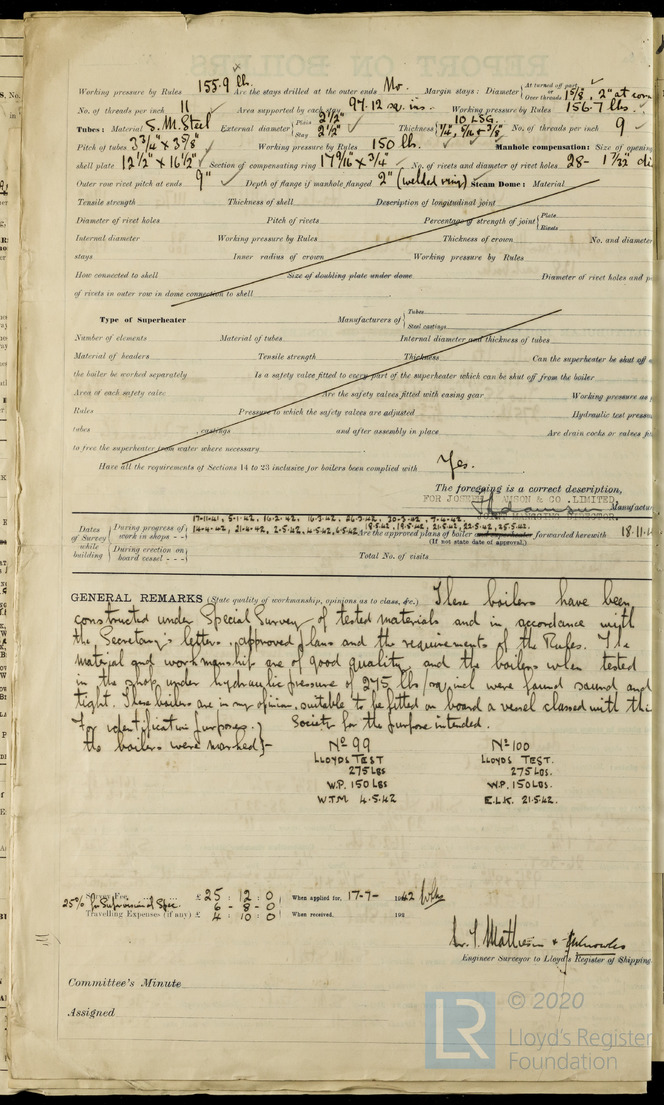 Working pressure by Rules 155.9 lb. Are the stays drilled at the outer ends No. Margin stays: Diameter { At turned off part, or Over threads 1 5/8", 2" at
No. of threads per inch 11 Area supported by each stay 97.12 sq. ins. Working pressure by Rules 156.7 lbs.
Tubes: Material S.M. Steel External diameter { Plain 2 1/2" Stay 2 1/2" Thickness { 10 LSG. 1/4", 5/16 & 3/8" No. of threads per inch 9
Pitch of tubes 3 3/4" x 3 5/8" Working pressure by Rules 150 lb. Manhole compensation: Size of opening
shell plate 12 1/2" x 16 1/2" Section of compensating ring 17 9/16 x 3/4" No. of rivets and diameter of rivet holes 28 - 1 7/32"
Outer row rivet pitch at ends 9" Depth of flange if manhole flanged 2" (welded ring) Steam Dome: Material
Tensile strength Thickness of shell Description of longitudinal joint
Diameter of rivet holes Pitch of rivets Percentage of strength of joint { Plate Rivets
Internal diameter Working pressure by Rules Thickness of crown No. and diameter
stays Inner radius of crown Working pressure by Rules
How connected to shell Size of doubling plate under dome Diameter of rivet holes and
of rivets in outer row in dome connection to shell
Type of Superheater Manufacturers of { Tubes Steel castings
Number of elements Material of tubes Internal diameter and thickness of tubes
Material of headers Tensile strength Thickness Can the superheater be shut off
the boiler be worked separately Is a safety valve fitted to every part of the superheater which can be shut off from the boiler
Area of each safety valve Are the safety valves fitted with easing gear Working pressure as
Rules Pressure to which the safety valves are adjusted Hydraulic test
tubes , castings and after assembly in place Are drain cocks or valves
to free the superheater from water where necessary
Have all the requirements of Sections 14 to 23 inclusive for boilers been complied with Yes.
The foregoing is a correct description,
FOR JOSEPH ADAMSON & CO., LIMITED,
MANAGING DIRECTOR.
Dates of Survey while building { During progress of work in shops - - 17-11-41, 5-1-42, 16-2-42, 16-3-42, 24-3-42, 30-3-42, 7-4-42,
14-4-42, 21-4-42, 2-5-42, 4-5-42, 18-5-42, 19-5-42, 21-5-42, 22-5-42, 25-5-42. Are the approved plans of boiler and superheater forwarded herewith
(If not state date of approval.)
During erection on board vessel - - - Total No. of visits
GENERAL REMARKS (State quality of workmanship, opinions as to class, &c.) These boilers have been
constructed under Special Survey of tested materials and in accordance with
the Secretary's letters, approved plans and the requirements of the Rules. The
material and workmanship are of good quality and the boilers when tested
in the shop under hydraulic pressure of 275 lbs/sq. inch were found sound and
tight. These boilers are in my opinion, suitable to be fitted on board a vessel classed with the
Society for the purpose intended.
For identification purposes }
the boilers were marked } -
Nº 99 Nº 100
LLOYDS TEST LLOYDS TEST.
275 LBS 275 LBS.
W.P. 150 LBS W.P. 150 LBS.
W.T.M 4.5.42 E.L.K. 21.5.42.
Survey Fee £ 25 : 12 : 0 When applied for, 17-7- 1942
25% 6 - 8 - 0
Travelling Expenses (if any) £ 4 : 10 : 0 When received, 193
Engineer Surveyor to Lloyd's Register of Shipping
Committee's Minute
Assigned
LR
© 2020
Lloyd's Register
Foundation